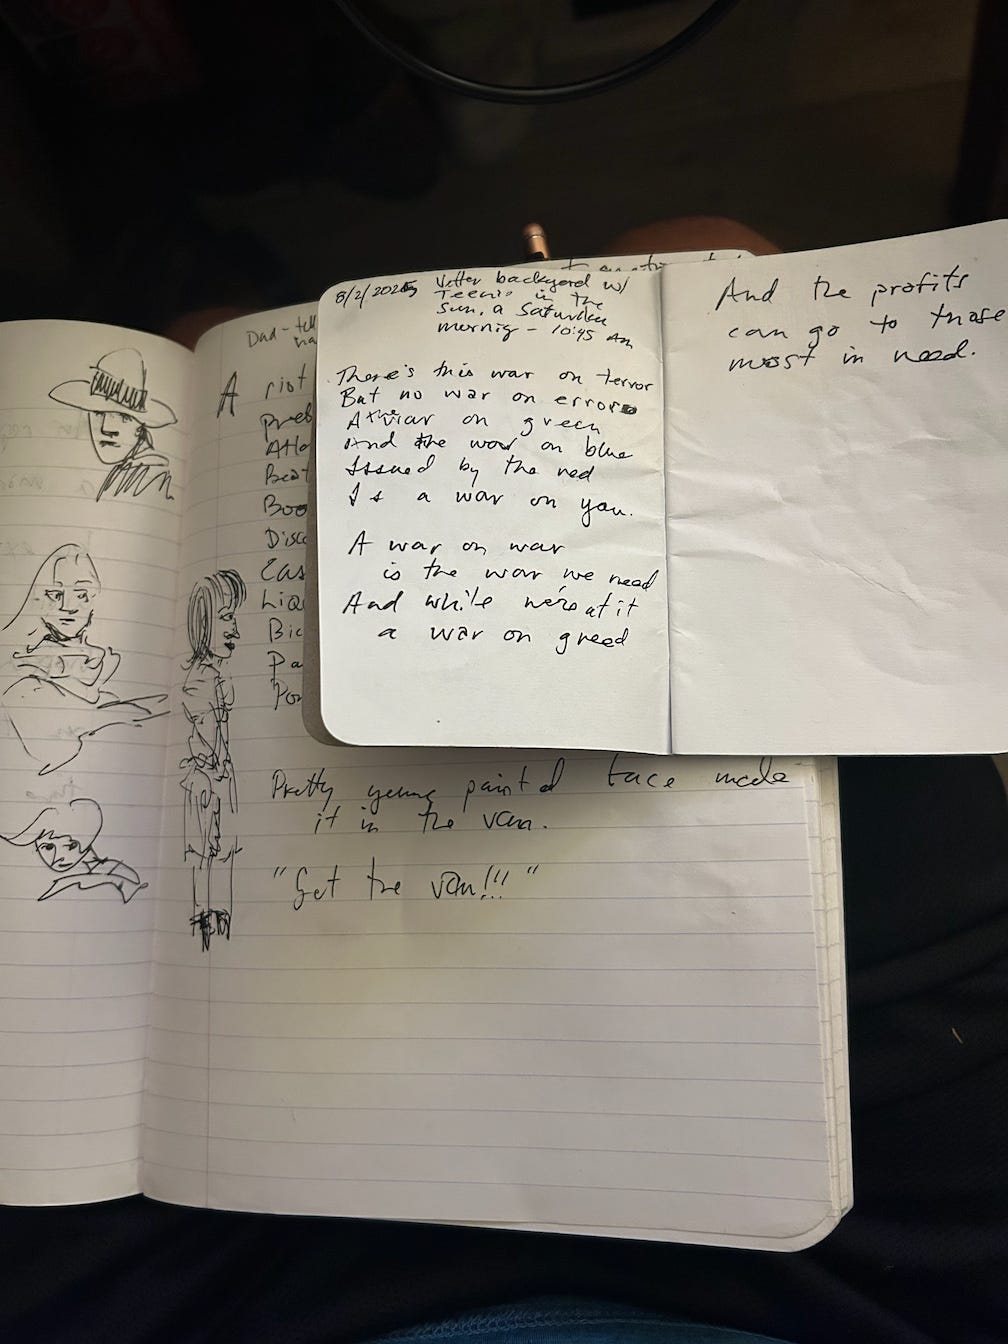 8/2/2025 Vetter backyard w/
Teenie in the
Sun, a Saturday
mornig - 10:45 am
There's this war on terror
But no war on errors
A war on green
And the war on blue
Issued by the red
Is a war on you.
A war on war
is the war we need
And while we're at it
a war on greed
And the profits
can go to those
most in need.
Dad - tell
A riot
Boo
Disc
Cas
Liq
Bic
Pa
Pretty young painted face made
it in the van.
"Get the van!!!"